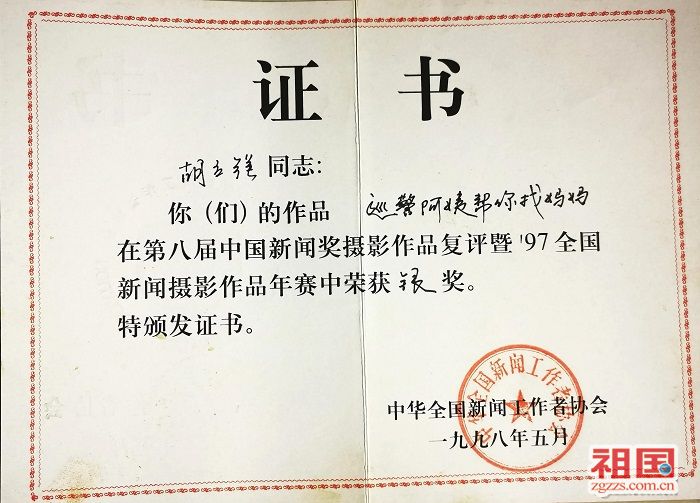 证书
胡 同志:
你(们)的作品 巡警阿姨帮你找妈妈
在第八届中国新闻奖摄影作品复评暨'97全国
新闻摄影作品年赛中荣获 银 奖。
特颁发证书。
中华全国新闻工作者协会
中华全国新闻工作者协会
一九九八年五月
祖国
zgzzs.com.cn